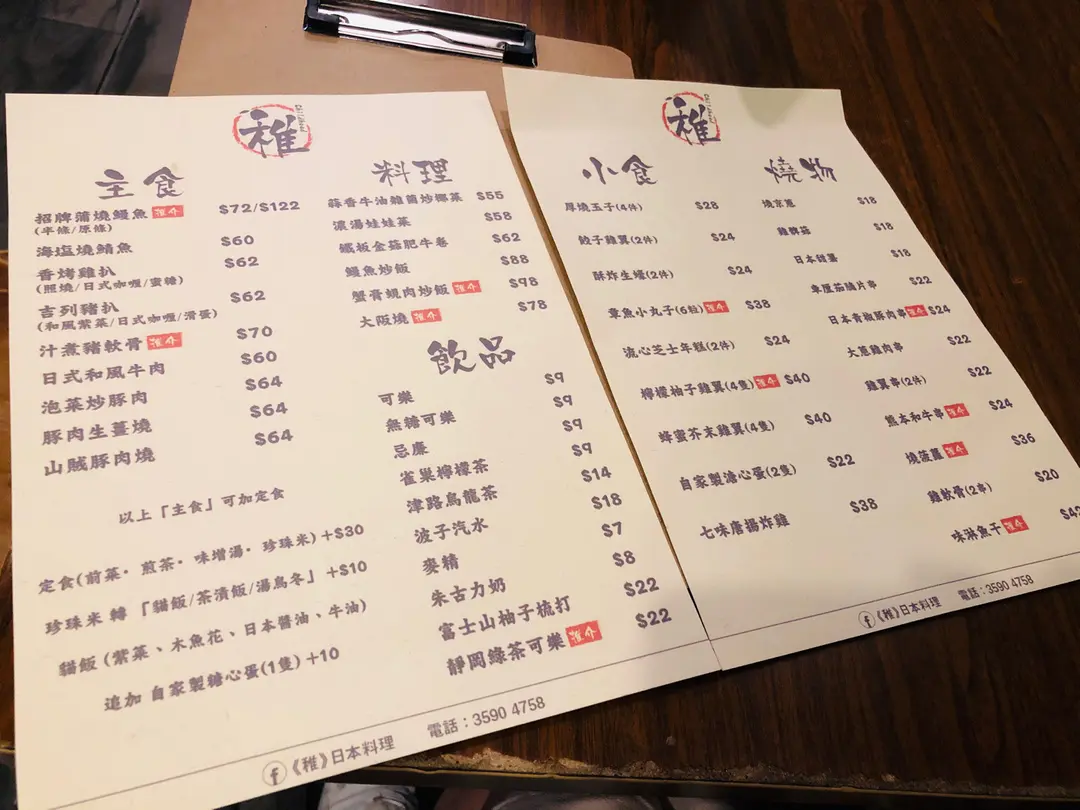 稚
主食
招牌蒲燒鰻魚 推介 $72/$122
(半條/原條)
海塩燒鯖魚 $60
香烤雞扒 $62
(照燒/日式咖喱/蜜糖)
吉列豬扒 $62
(和風紫菜/日式咖喱/滑蛋)
汁煮豬軟骨 推介 $70
日式和風牛肉 $60
泡菜炒豚肉 $64
豚肉生薑燒 $64
山賊豚肉燒 $64
以上「主食」可加定食
定食(前菜・煎茶・味增湯・珍珠米) +$30
珍珠米 轉 「貓飯/茶漬飯/湯烏冬」 +$10
貓飯 (紫菜、木魚花、日本醬油、牛油)
追加 自家製糖心蛋(1隻) +10
料理
蒜香牛油雜菌炒椰菜 $55
濃湯娃娃菜 $58
鐵板金菇肥牛卷 $62
鰻魚炒飯 $88
蟹膏蜆肉炒飯 推介 $98
大阪燒 推介 $78
飲品
可樂 $9
無糖可樂 $9
忌廉 $9
雀巢檸檬茶 $9
津路烏龍茶 $14
波子汽水 $18
麥精 $7
朱古力奶 $8
富士山柚子梳打 $22
靜岡綠茶可樂 推介 $22
f 《稚》日本料理 電話：3590 4758
稚
小食
厚燒玉子(4件) $28
餃子雞翼(2件) $24
酥炸生蠔(2件) $24
章魚小丸子(6粒) 推介 $38
流心芝士年糕(2件) $24
檸檬柚子雞翼(4隻) 推介 $40
蜂蜜芥末雞翼(4隻) $40
自家製溏心蛋(2隻) $22
七味唐揚炸雞 $38
燒物
燒京蔥 $18
雞髀菇 $18
日本甜薯 $18
車厘茄腩片串 $22
日本青椒豚肉串 推介 $24
大蔥雞肉串 $22
雞翼串(2件) $22
熊本和牛串 推介 $24
燒菠蘿 推介 $36
雞軟骨(2串) $20
味淋魚干 推介 $42
f 《稚》日本料理 電話：3590 4758